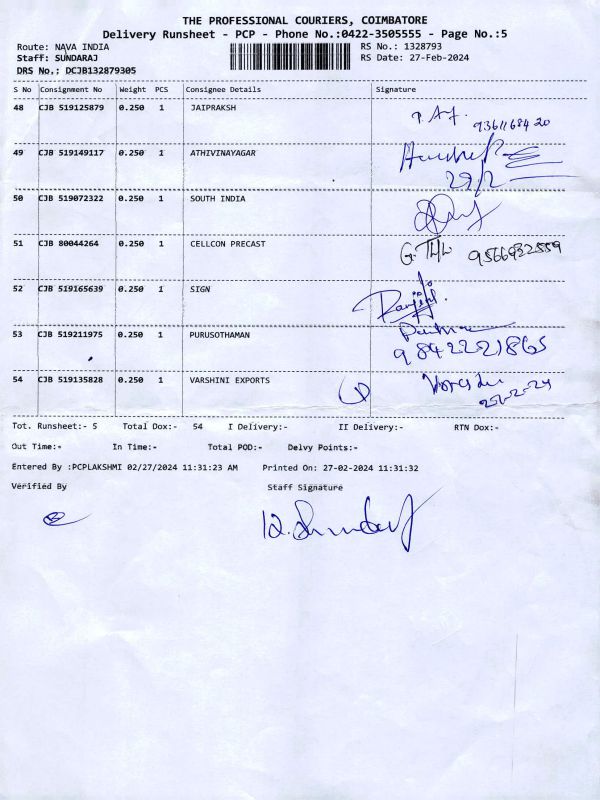 THE PROFESSIONAL COURIERS, COIMBATORE
Delivery Runsheet - PCP - Phone No.:0422-3505555 - Page No.:5
Route: NAVA INDIA RS No.: 1328793
Staff: SUNDARAJ RS Date: 27-Feb-2024
DRS No.: DCJB132879305
S No Consignment No Weight PCS Consignee Details Signature
48 CJB 519125879 0.250 1 JAIPRAKSH
9361168420
49 CJB 519149117 0.250 1 ATHIVINAYAGAR
29/2
50 CJB 519072322 0.250 1 SOUTH INDIA
51 CJB 80044264 0.250 1 CELLCON PRECAST
9566932559
52 CJB 519165639 0.250 1 SIGN
53 CJB 519211975 0.250 1 PURUSOTHAMAN
9842221865
54 CJB 519135828 0.250 1 VARSHINI EXPORTS
27-2-24
Tot. Runsheet:- 5 Total Dox:- 54 I Delivery:- II Delivery:- RTN Dox:-
Out Time:- In Time:- Total POD:- Delvy Points:-
Entered By :PCPLAKSHMI 02/27/2024 11:31:23 AM Printed On: 27-02-2024 11:31:32
Verified By Staff Signature